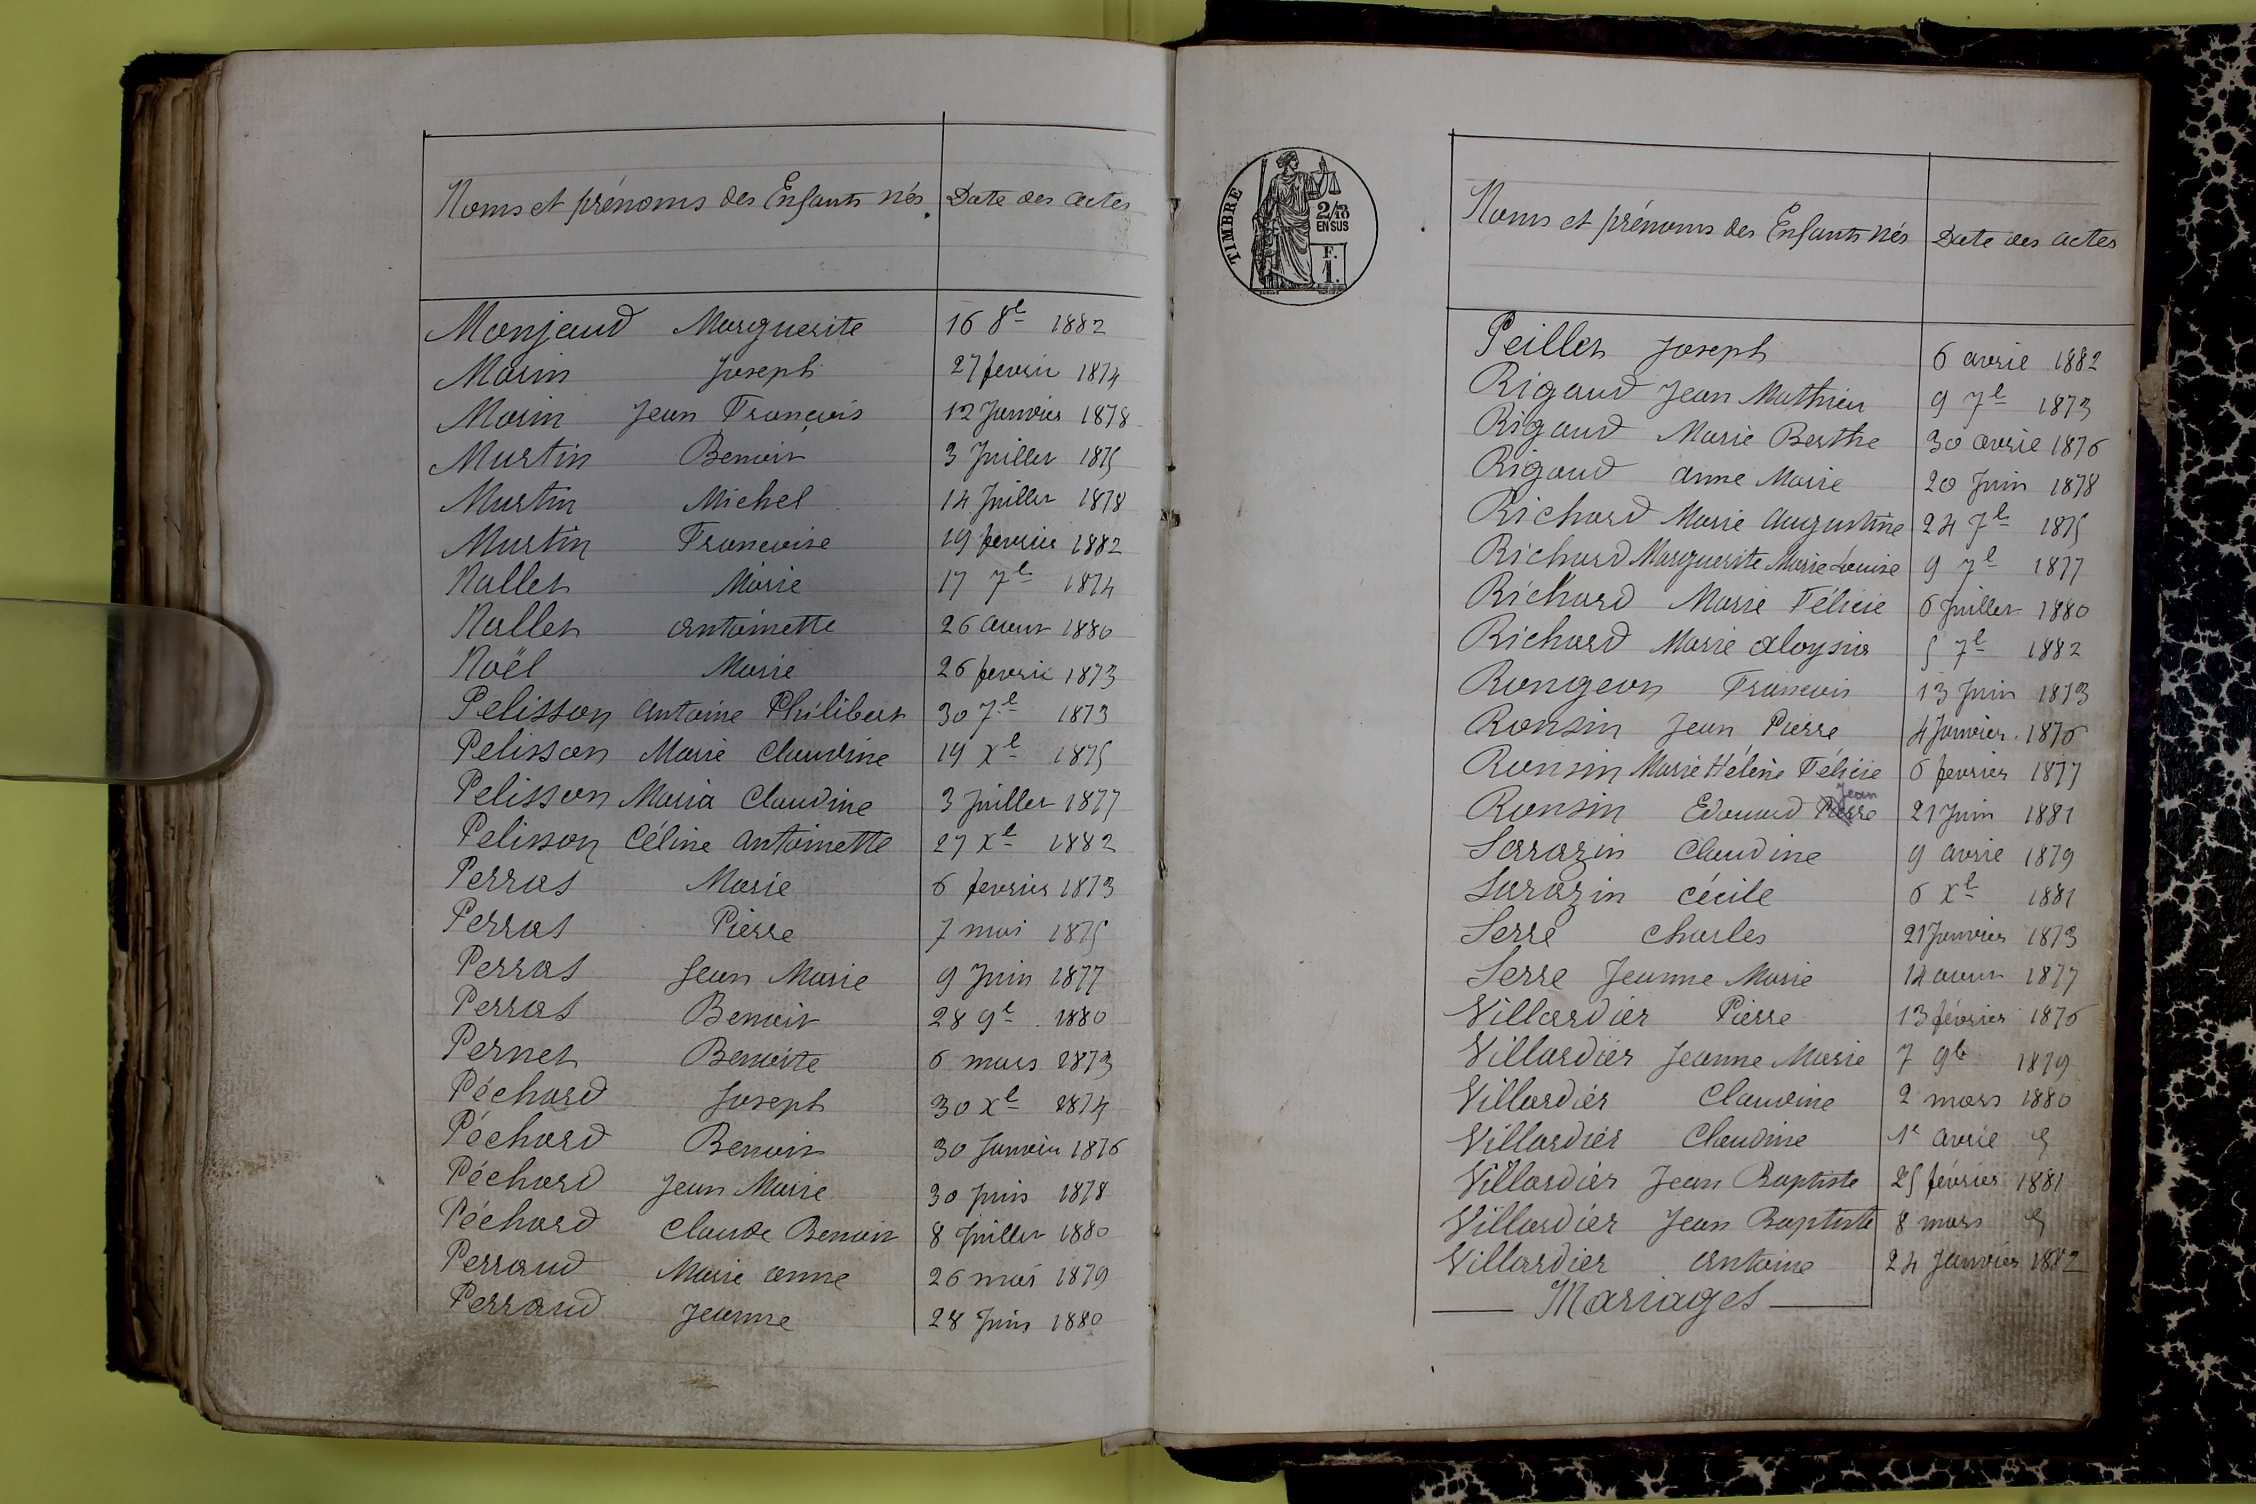 Noms et prénoms des Enfants nés. Date des actes
Monjaud Marguerite 16 8b 1882
Morin Joseph 27 fevrir 1874
Morin Jean François 12 Janvier 1878
Murtin Benoit 3 Juillet 1875
Murtin Michel 14 Juillet 1878
Murtin Francoise 19 fevrier 1882
Nallet Marie 17 7b 1874
Nallet antoinette 26 aout 1880
Noël Marie 26 fevrie 1873
Pelisson antoine Philibert 30 7b 1873
Pelisson Marie Claudine 19 Xb 1875
Pelisson Maria Claudine 3 Juillet 1877
Pelisson Céline antoinette 27 Xb 1882
Perras Marie 6 fevrier 1873
Perras Pierre 7 mai 1875
Perras Jean Marie 9 Juin 1877
Perras Benoit 28 9b 1880
Pernet Benoite 6 mars 1873
Péchard Joseph 30 Xb 1874
Péchard Benoit 30 Janvier 1876
Péchard Jean Marie 30 Juin 1878
Péchard Claude Benoit 8 Juillet 1880
Perraud Marie anne 26 mai 1879
Perraud Jeanne 28 Juin 1880
TIMBRE
2/10
EN SUS
F.
1.
Noms et prénoms des Enfants nés Date des actes
Peillet Joseph 6 avril 1882
Rigaud Jean Mathieu 9 7b 1873
Rigaud Marie Berthe 30 avril 1876
Rigaud anne Marie 20 Juin 1878
Richard Marie augustine 24 7b 1875
Richard Marguerite Marie Louise 9 7b 1877
Richard Marie Félicie 6 Juillet 1880
Richard Marie aloysia 5 7b 1882
Rongeon Francois 13 Juin 1873
Ronsin Jean Pierre 4 Janvier 1876
Ronsin Marie Hélène Félicie 6 fevrier 1877
Jean
Ronsin Edouard Pierre 21 Juin 1881
Sarrazin Claudine 9 avril 1879
Sarazin Cécile 6 Xb 1881
Serre Charles 21 Janvier 1873
Serre Jeanne Marie 14 aout 1877
Villardier Pierre 13 février 1876
Villardier Jeanne Marie 7 9b 1879
Villardier Claudine 2 mars 1880
Villardier Claudine 1er avril
Villardier Jean Baptiste 25 février 1881
Villardier Jean Baptiste 8 mars
Villardier antoine 24 Janvier 1882
Mariages